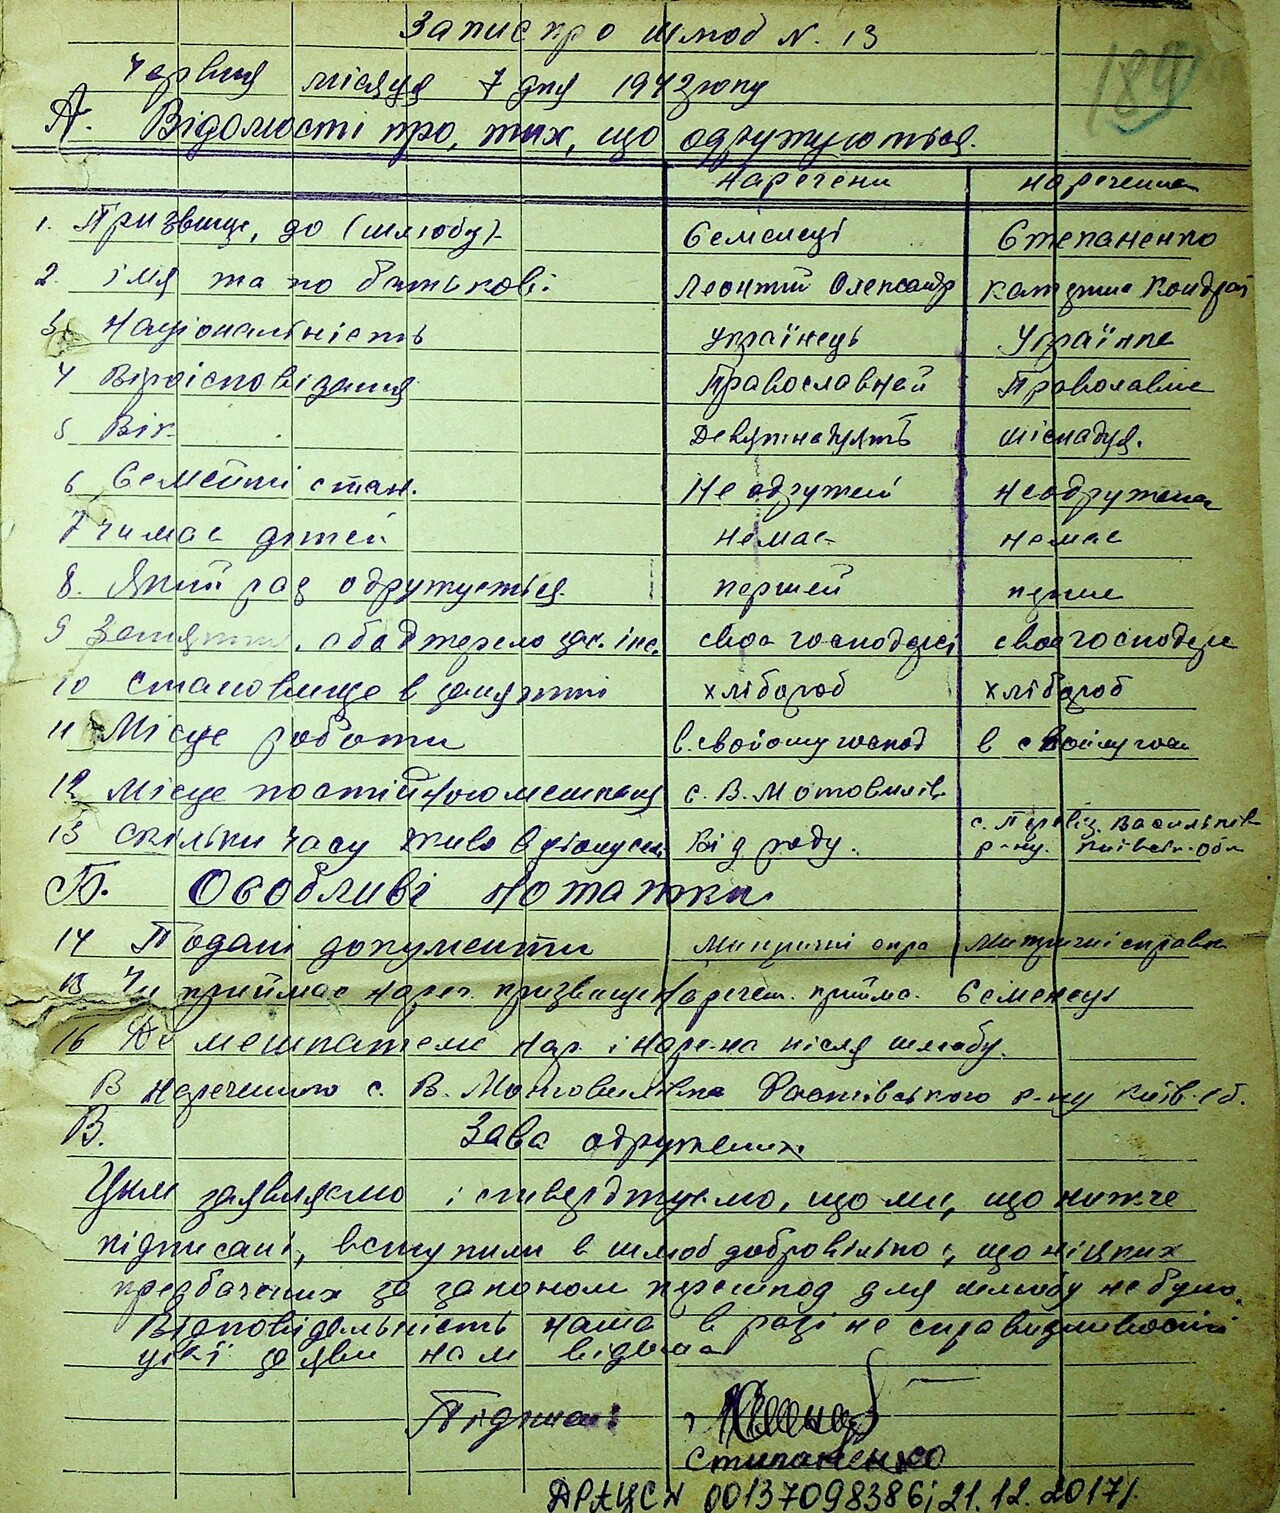 Запис про шлюб N. 13
184
Червня місяця 7 дня 1942 року
А. Відомості про, тих, що одружуються.
Наречени Наречена
1. Призвище, до (шлюбу) Семенець Степаненко
2. імя та по батькові: Леонтій Олександр Катерина Кондрат
3. Національність Українець Українка
4 Віроісповідання Православней Православна
5 Вік. Девятнадцять шіснадця.
6 Семейни стан. Не одружей неодружена
7 чи має дітей немає немає
8. Який раз одружується першей перше
9 Заняття, або джерело існ. своє господарс своє господар
10 становище в занятті хлібороб хлібороб
11 Місце роботи в свойому господ в своїму гос
12 Місце постійного мешкання с. В. Мотовилів
с. Перевіз. Васильків
13 скільки часу живе в даному сел. Від роду. р-ну. Київськ. Обл
Б. Особливі нотатки
14 Подані документи Митричні спра Митричні справки
15 Чи приймає нареч. призвище Наречен. прийма. Семенець
16 Де мешкатеме нар. і наре-на після шлюбу.
В нареченого с. В. Мотовилівка Фастівського р-ну Київ. об.
В. Зава одружених
Цим заявляємо і стверджуємо, що ми, що нижче
підписані, вступили в шлюб добровільно і, що ніяких
предбачених за законом перешкод для шлюбу не було.
Відповідальність наша в разі не справидливості
цієї заяви нам відома
Підписи:
Степаненко
ДРАЦСУ 00137098386; 21.12.2017р.